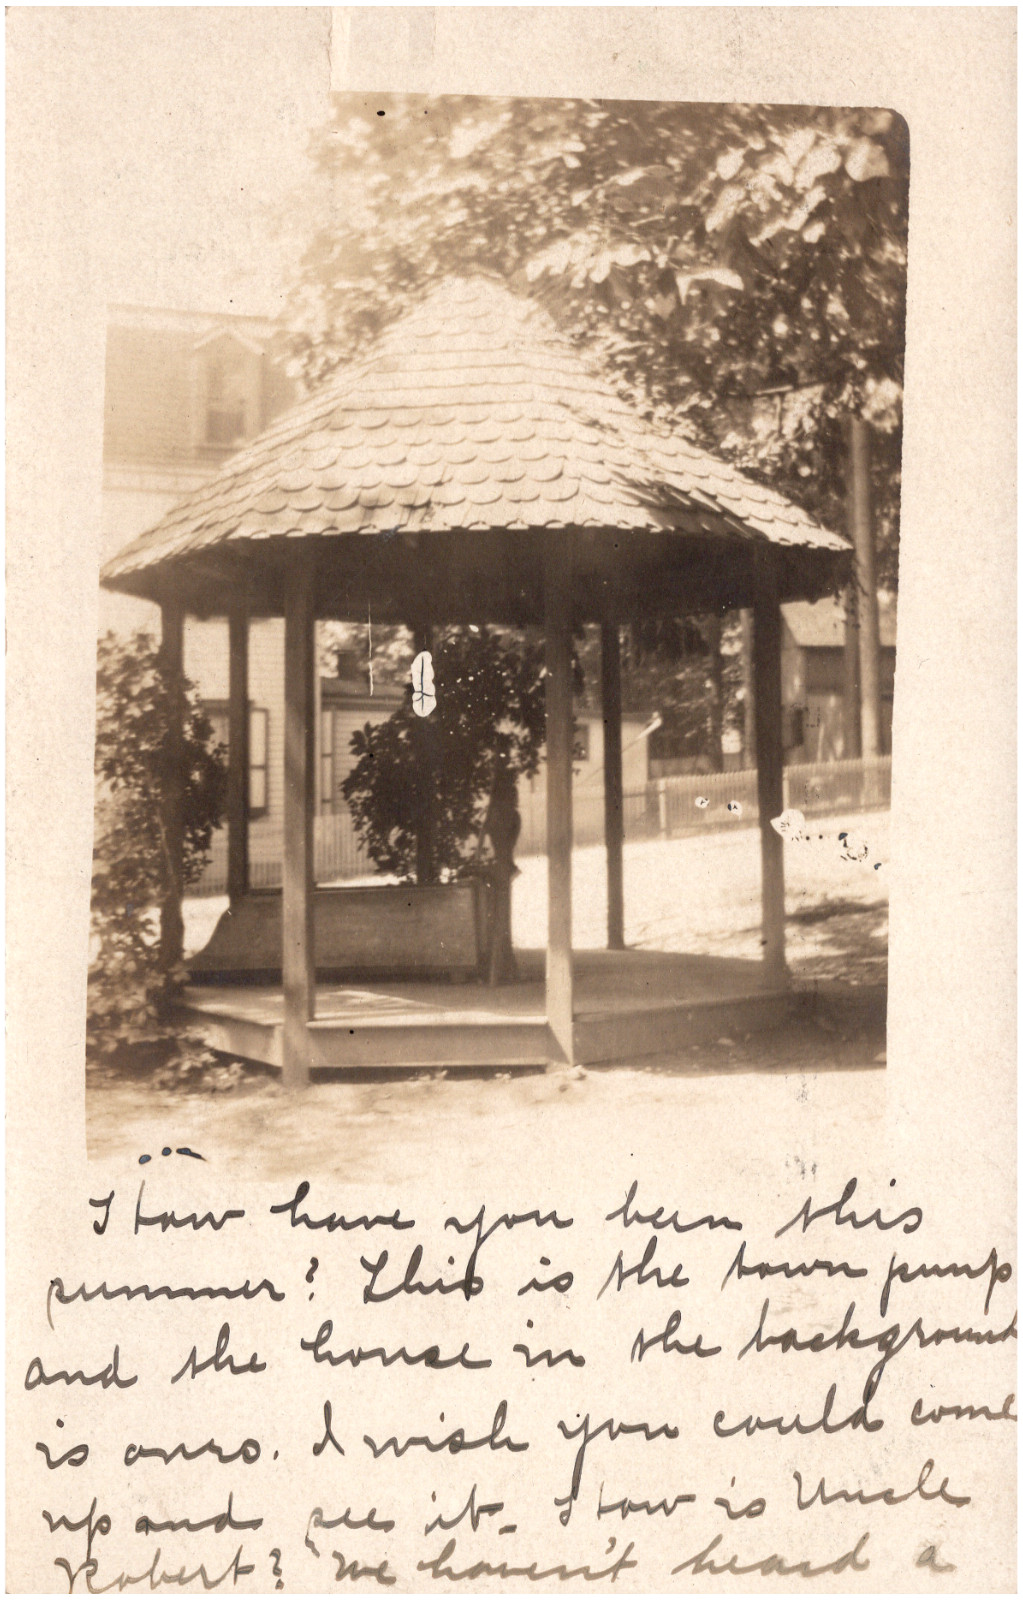 How have you been this
summer? This is the town pump
and the house in the background
is ours. I wish you could come
up and see it - How is Uncle
Robert? We haven't heard a